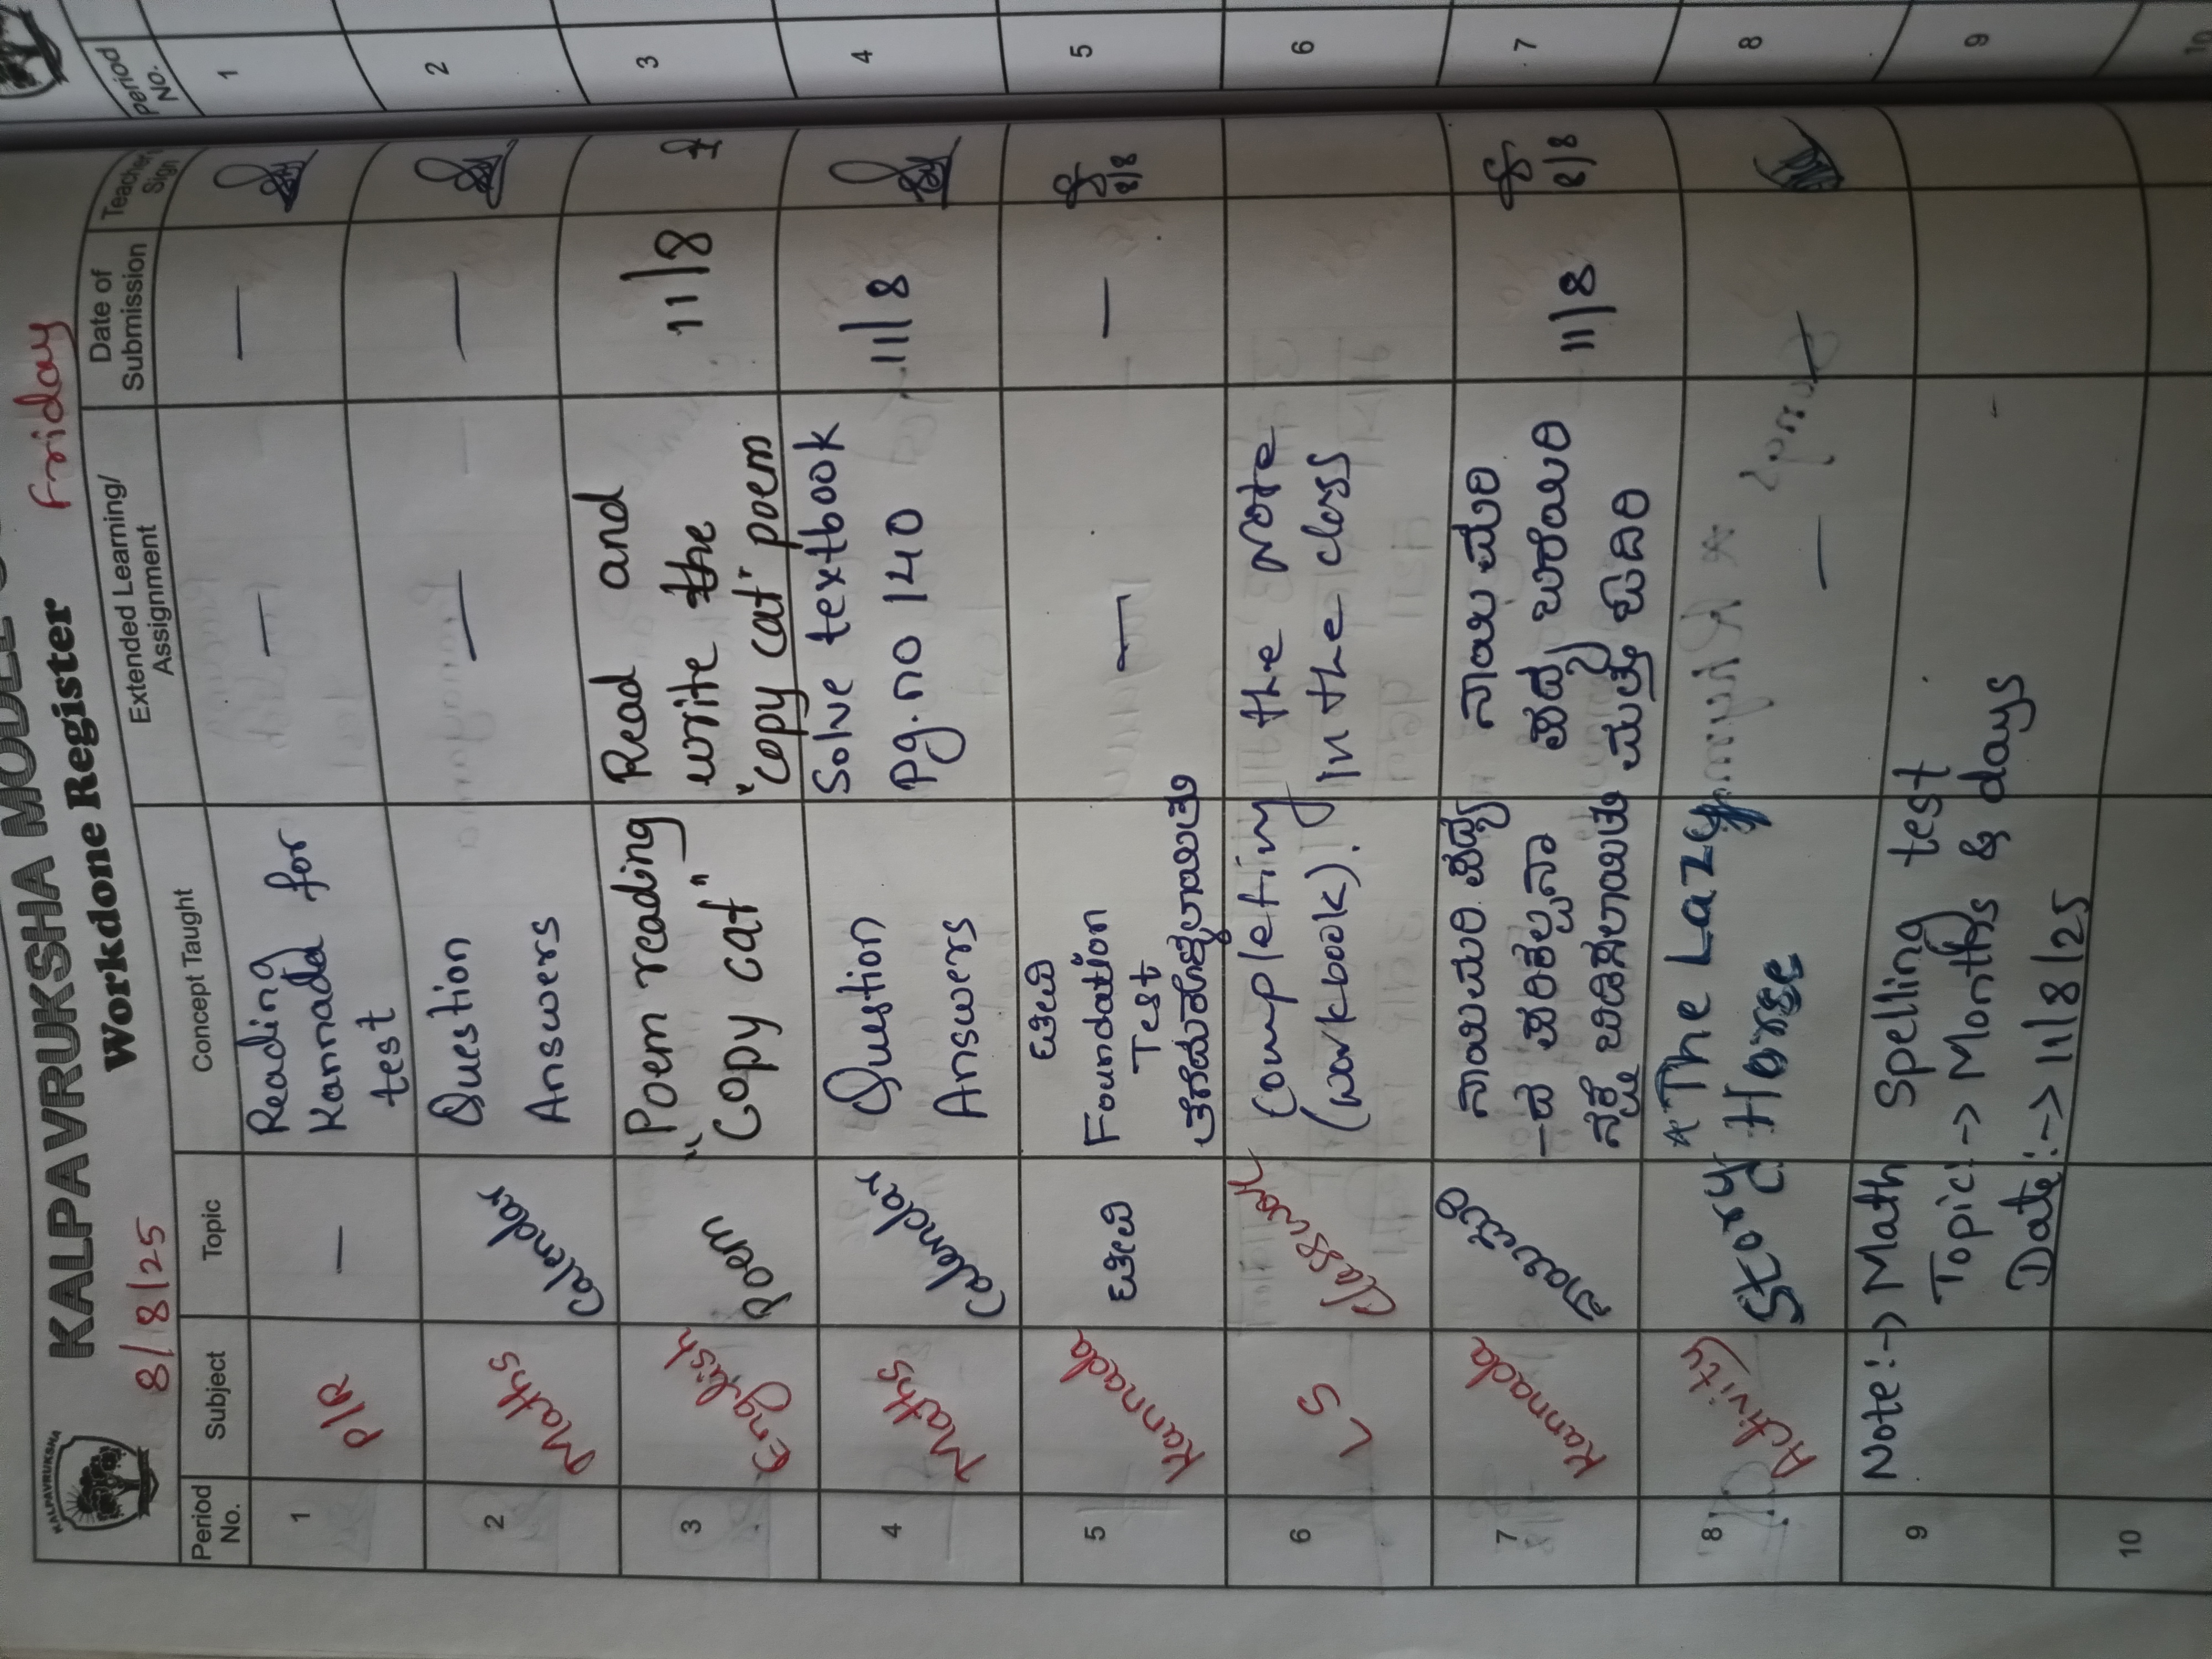 KALPAVRUKSHA
KALPAVRUKSHA MODEL
Workdone Register
8/8/25
Friday
Period No.
Subject
Topic
Concept Taught
Extended Learning/ Assignment
Date of Submission
Teacher Sign
1
P/R
—
Reading for
Kannada for
test
—
—
2
Maths
Calendar
Question
Answers
—
—
3
English
Poem
Poem reading
"Copy cat"
Read and
write the
"copy cat" poem
11/8
4
Maths
Calendar
Question
Answers
Solve textbook
pg.no 140
11/8
5
Kannada
ಟೀವಿ
ಟೀವಿ
Foundation
Test
—
—
8/8
6
LS
Classwork
Completing the note
(workbook). In the class
7
Kannada
ನಾಯಿಮರಿ
ನಾಯಿಮರಿ ಪದ್ಯ
ನಾಯಿ ಮರಿ
ಪದ್ಯ ಬರೆಯಿರಿ
ಮತ್ತು ಓದಿರಿ
11/8
8/8
8
Activity
Story
* The Lazy
Horse
—
9
Note:-> Math Spelling test
Topic:-> Months & days
Date:-> 11/8/25
10
Period No.
1
2
3
4
5
6
7
8
9
10